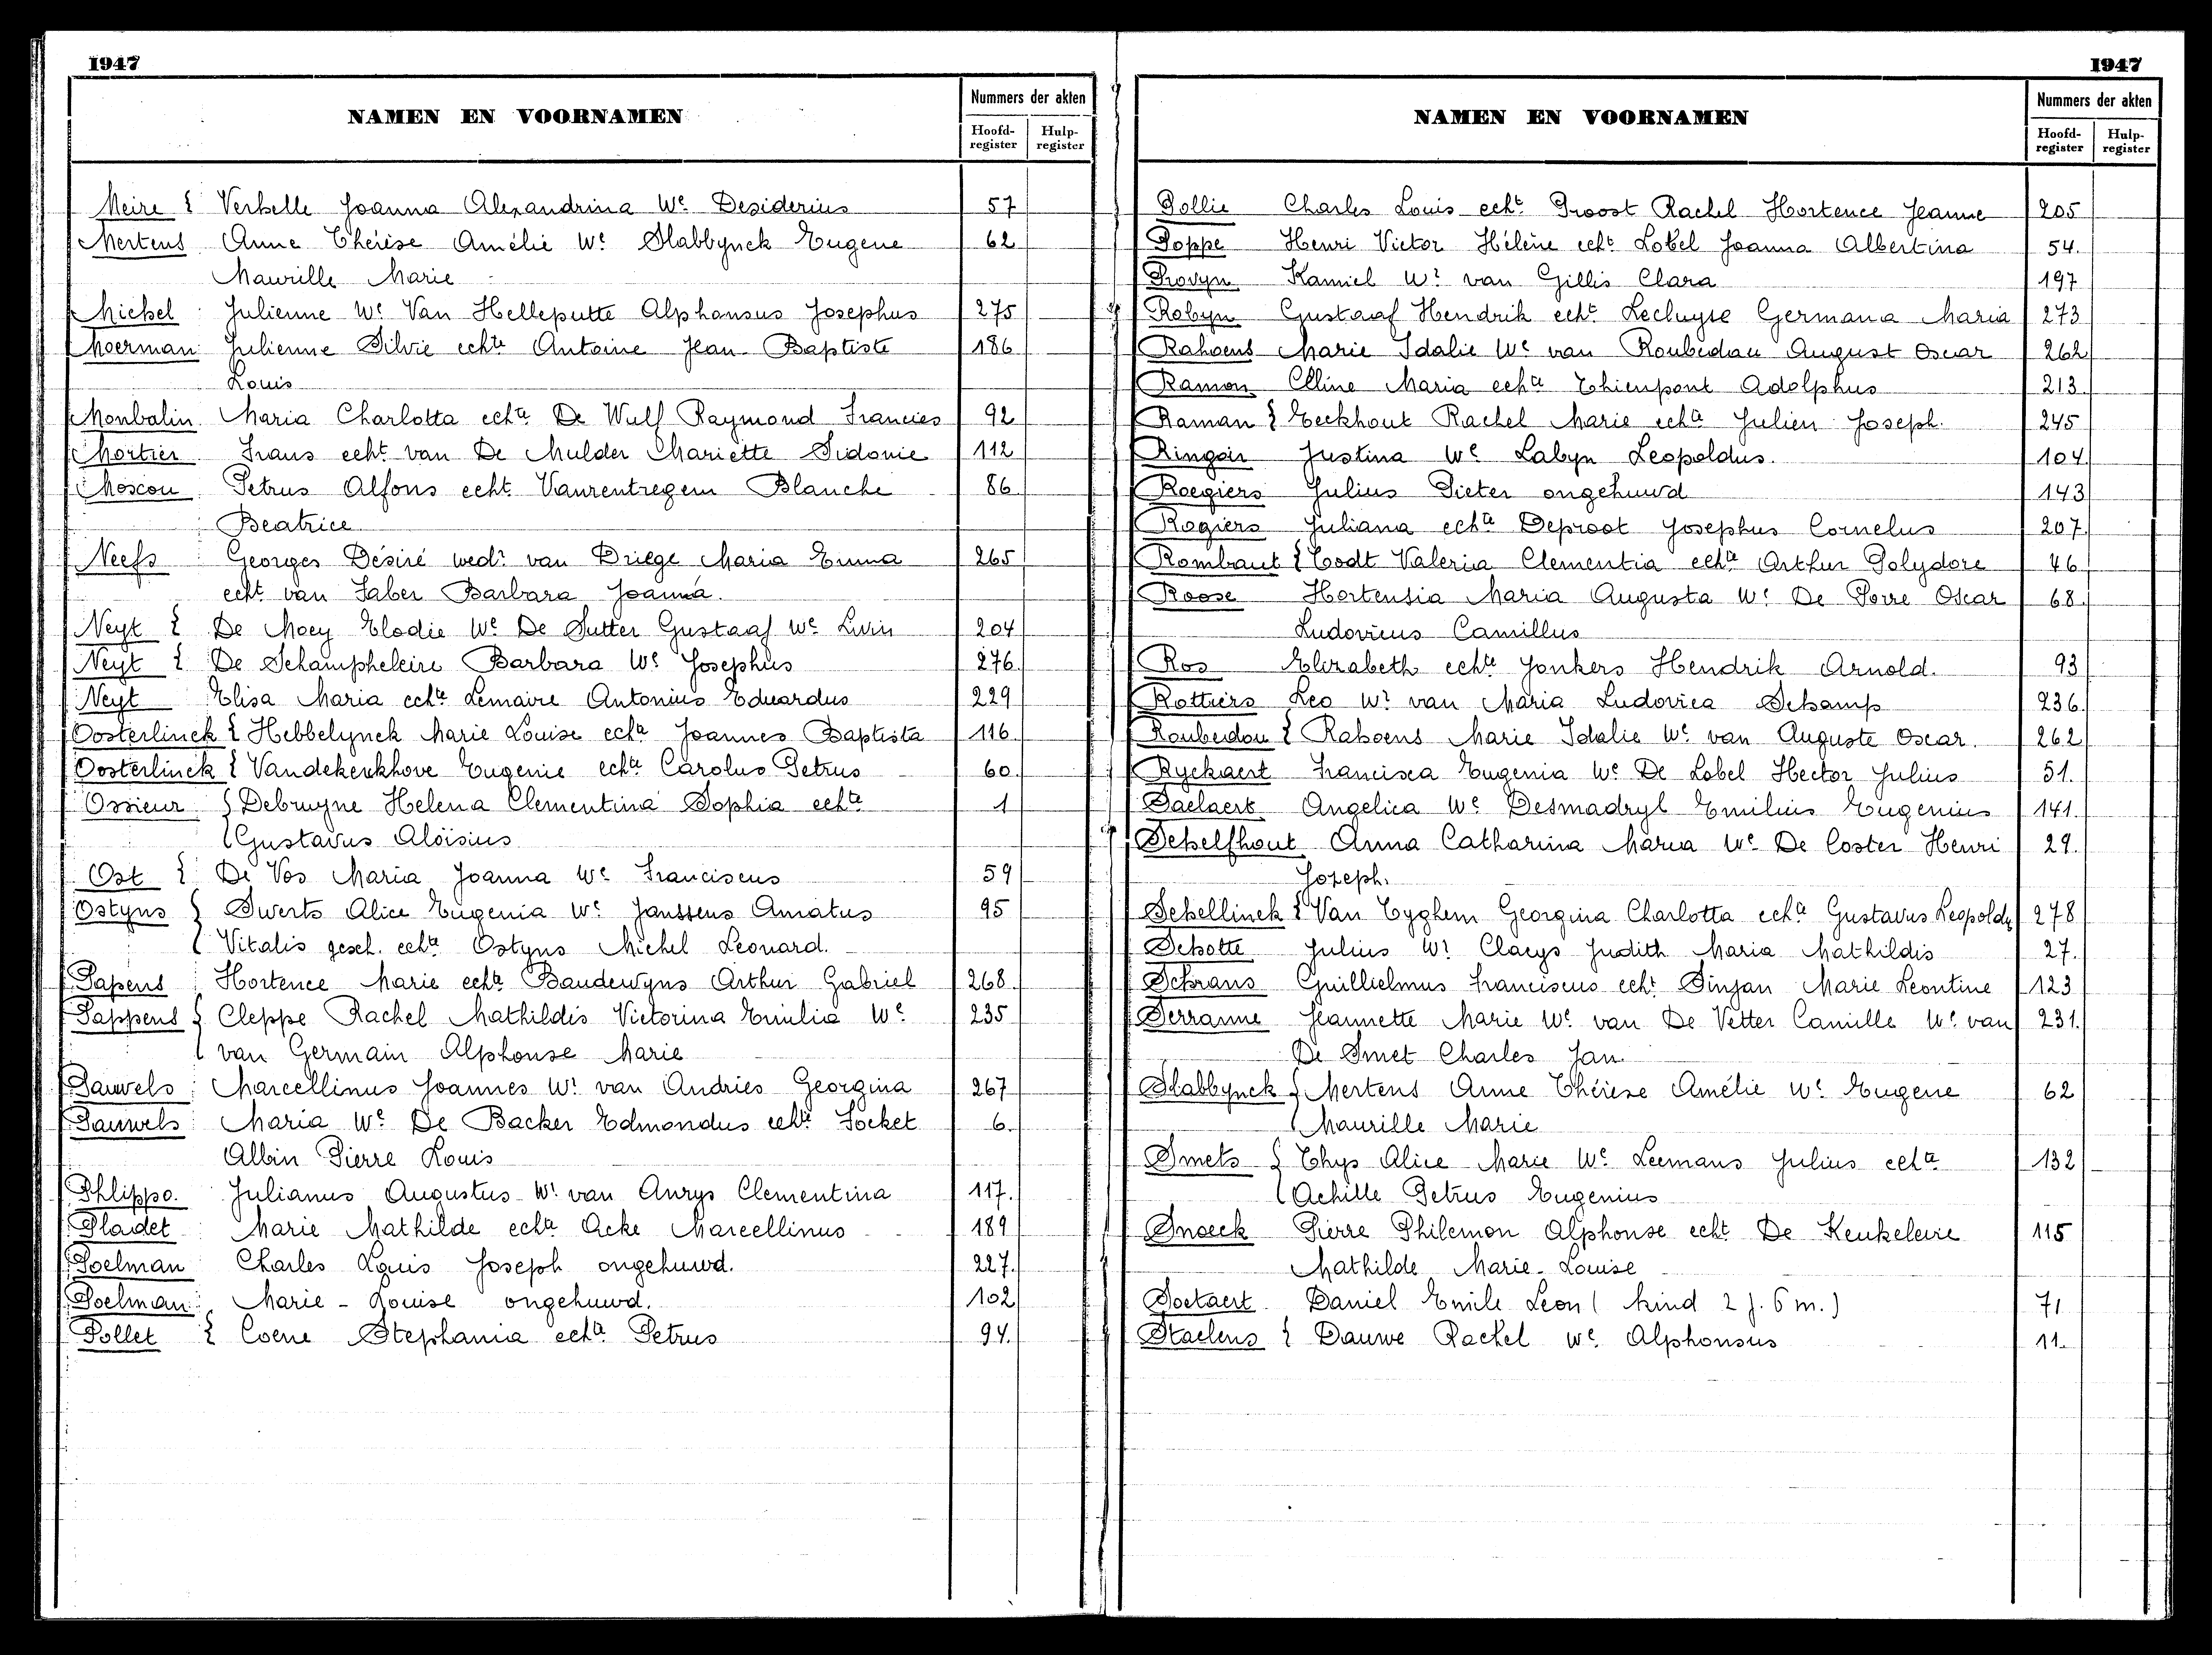 1947
NAMEN EN VOORNAMEN
Nummers der akten
Hoofd-register
Hulp-register
Meire { Verhelle Joanna Alexandrina We Desiderius 57
Mertens Anne Thérèse Amélie We Slabbynck Eugene 62
Maurille Marie
Michel Julienne We Van Helleputte Alphonsus Josephus 275
Moerman Julienne Silvie echte Antoine Jean Baptiste 186
Louis
Monbalin Maria Charlotta echte De Wulf Raymond Francies 92
Mortier Frans echt van De Mulder Mariette Sidonie 112
Moscou Petrus Alfons echt. Vanrentregem Blanche 86
Beatrice
Neefs Georges Désiré wedr van Driege Maria Emma 265
echt van Faber Barbara Joanna.
Neyt { De Moey Elodie We De Sutter Gustaaf We Livin 204
Neyt { De Schampheleire Barbara We Josephus 276
Neyt Elisa Maria echte Lemaire Antonius Eduardus 229
Oosterlinck { Hebbelynck Marie Louise echte Joannes Baptista 116
Oosterlinck { Vandekerkhove Eugenie echte Carolus Petrus 60
Ossieur { Debruyne Helena Clementina Sophia echte 1
Gustavus Aloïsius
Ost { De Vos Maria Joanna We Franciscus 59
Ostyns { Swerts Alice Eugenia We Janssens Amatus 95
Vitalis gesch. echte Ostyns Michel Leonard.
Papens Hortence Marie echte Baudewyns Arthur Gabriel 268
Pappens { Cleppe Rachel Mathildis Victorina Emilia We 235
van Germain Alphonse Marie
Pauwels Marcellinus Joannes Wr van Andries Georgina 267
Pauwels Maria We De Backer Edmondus echte Focket 6
Albin Pierre Louis
Phlippo. Julianus Augustus Wr van Anrys Clementina 117.
Pladet Marie Mathilde echte Acke Marcellinus 189
Poelman Charles Louis Joseph ongehuwd. 227.
Poelman Marie-Louise ongehuwd. 102
Pollet { Coene Stephania echte Petrus 94.
1947
NAMEN EN VOORNAMEN
Nummers der akten
Hoofd-register
Hulp-register
Pollie Charles Louis echt Proost Rachel Hortence Jeanne 205
Poppe Henri Victor Hélène echt Lobel Joanna Albertina 54.
Provyn Kamiel Wr van Gillis Clara 197
Robyn Gustaaf Hendrik echt Lecluyse Germana Maria 273
Rahoens Marie Idalie We van Roubedou August Oscar 262
Ramon Elline Maria echte Thienpont Adolphus 213.
Raman { Eeckhout Rachel Marie echte Julien Joseph. 245
Ringoir Justina We Labyn Leopoldus. 104.
Roegiers Julius Pieter ongehuwd 143
Rogiers Juliana echte Deproot Josephus Cornelus 207.
Rombaut { Toodt Valeria Clementia echte Arthur Polydore 46
Roose Hortensia Maria Augusta We De Porre Oscar 68.
Ludovicus Camillus
Ros Elizabeth echte Jonkers Hendrik Arnold. 93
Rottiers Leo Wr van Maria Ludovica Schamp 236.
Roubedou { Rahoens Marie Idalie We van Auguste Oscar. 262
Ryckaert Francisca Eugenia We De Lobel Hector Julius 51.
Saelaert Angelica We Desmadryl Emilius Eugenius 141.
Schelfhout Anna Catharina Maria We De Coster Henri 29.
Jozeph.
Schellinck { Van Tyghem Georgina Charlotta echte Gustavus Leopolds 278
Schotte Julius Wr Claeys Judith Maria Mathildis 27.
Schrans Guillielmus Franciscus echt Pinjan Marie Leontine 123
Serranne Jeannette Marie We van De Vetter Camille We van 231.
De Smet Charles Jan.
Slabbynck { Mertens Anne Thérèse Amélie We Eugene 62
Maurille Marie
Smets { Thys Alice Marie We Leemans Julius echte 132
Achille Petrus Eugenius
Snoeck Pierre Philemon Alphonse echt De Keukeleire 115
Mathilde Marie-Louise
Soetaert Daniel Emile Leon ( kind 2 j. 6 m.) 71
Staelens { Dauwe Rachel We Alphonsus 11.